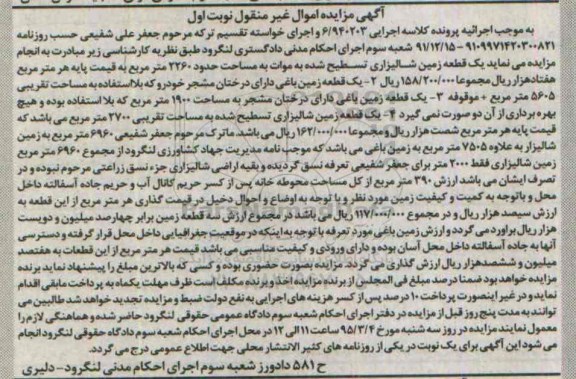 آگهی مزایده اموال غیر منقول نوبت اول
به موجب اجرائیه پرونده کلاسه اجرایی ۶/۹۴۰۲۰۳ و اجرای خواسته تقسیم ترکه مرحوم جعفر علی شفیعی حسب روزنامه
۹۱۰۹۹۷۱۴۲۰۳۰۰۸۲۱ – ۹۱/۱۲/۱۵ شعبه سوم اجرای احکام مدنی دادگستری لنگرود طبق نظریه کارشناسی زیر مبادرت به انجام
مزایده می نماید یک قطعه زمین شالیزاری تسطیح شده به موات به مساحت حدود ۲۲۶۰ متر مربع به قیمت پایه هر متر مربع
هفتادهزار ریال مجموعا ۱۵۸/۲۰۰/۰۰۰ ریال ۲- یک قطعه زمین باغی دارای درختان مشجر خودرو که بلااستفاده به مساحت تقریبی
۵۶۰۵ متر مربع + موقوفه ۳- یک قطعه زمین باغی دارای درختان مشجر به مساحت ۱۹۰۰ متر مربع که بلا استفاده بوده و هیچ
بهره برداری از آن دو صورت نمی گیرد ۴- یک قطعه زمین شالیزاری تسطیح شده به مساحت تقریبی ۲۷۰۰ متر مربع می باشد که
قیمت پایه هر متر مربع شصت هزار ریال و مجموعا ۱۶۲/۰۰۰/۰۰۰ ریال می باشد. ماترک مرحوم جعفر شفیعی ۶۹۶۰ متر مربع به زمین
شالیزار به علاوه ۷۵۰۵ متر مربع به زمین باغی می باشد که موجب نامه مدیریت جهاد کشاورزی لنگرود از مجموع ۶۹۶۰ متر مربع
زمین شالیزاری فقط ۲۰۰۰ متر برای جعفر شفیعی تعرفه نسق گردیده و بقیه اراضی شالیزاری جزء نسق زراعتی مرحوم نبوده و در
تصرف ایشان می باشد ارزش ۳۹۰ متر مربع از کل مساحت محوطه خانه پس از کسر حریم کانال آب و حریم جاده آسفالته داخل
محل و باتوجه به کمیت و کیفیت زمین مورد نظر و با توجه به اوضاع و احوال دخیل در قیمت گذاری هر متر مربع از این قطعه به
ارزش سیصد هزار ریال و در مجموع ۱۱۷/۰۰۰/۰۰۰ ریال می باشد در مجموع ارزش سه قطعه زمین برابر چهارصد میلیون و دویست
هزار ریال برآورد می گردد و ارزش زمین باغی مورد تعرفه با توجه به اینکه در موقعیت جغرافیایی داخل محل قرار گرفته و دسترسی
آنها به جاده آسفالته داخل محل آسان بوده و دارای ورودی و کیفیت مناسبی می باشد قیمت هر متر مربع از این قطعات به هفتصد
میلیون و ششصدهزار ریال ارزش گذاری می گردد. مزایده بصورت حضوری بوده و کسی که بالاترین مبلغ را پیشنهاد نماید برنده
مزایده خواهد بود ضمنا ده درصد مبلغ فی المجلس از برنده مزایده اخذ و برنده مکلف است ظرف مهلت یکماه به پرداخت مابقی اقدام
نماید و در غیر اینصورت پرداخت ۱۰ درصد پس از کسر هزینه های اجرایی به نفع دولت ضبط و مزایده تجدید خواهد شد طالبین می
توانند به مدت پنج روز قبل از مزایده در دفتر اجرای احکام شعبه سوم دادگاه عمومی حقوقی لنگرود حاضر شده و هماهنگی لازم را
معمول نمایند مزایده در روز سه شنبه مورخ ۹۵/۳/۴ ساعت ۱۱ الی ۱۲ در محل اجرای احکام شعبه سوم دادگاه حقوقی لنگرود انجام
می شود این آگهی برای یک نوبت در یکی از روزنامه های کثیر الانتشار محلی جهت اطلاع عمومی درج می گردد.
ح ۵۸۱ دادورز شعبه سوم اجرای احکام مدنی لنگرود- دلیری